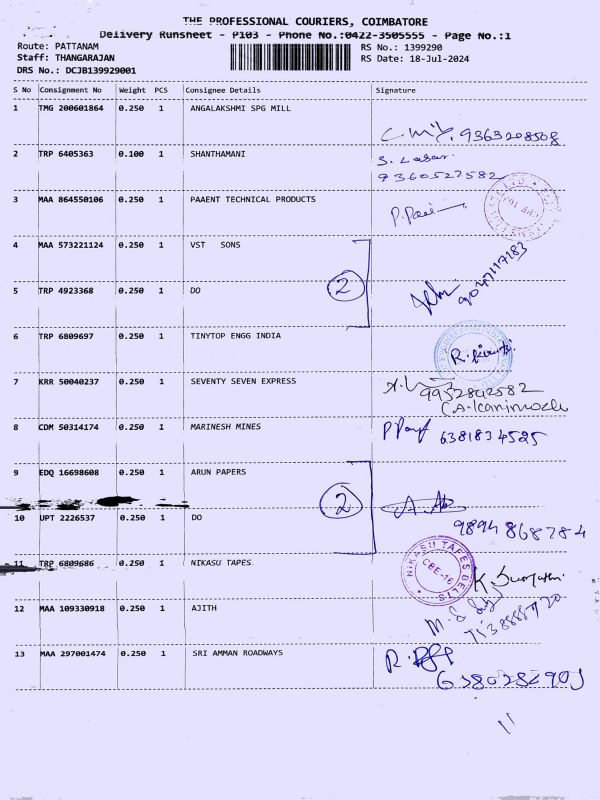 THE PROFESSIONAL COURIERS, COIMBATORE
Delivery Runsheet - P103 - Phone No.:0422-3505555 - Page No.:1
Route: PATTANAM RS No.: 1399290
Staff: THANGARAJAN RS Date: 18-Jul-2024
DRS No.: DCJB139929001
S No Consignment No Weight PCS Consignee Details Signature
1 TMG 200601864 0.250 1 ANGALAKSHMI SPG MILL
9363208508
2 TRP 6405363 0.100 1 SHANTHAMANI
9360527582
3 MAA 864550106 0.250 1 PAAENT TECHNICAL PRODUCTS
4 MAA 573221124 0.250 1 VST SONS
2
5 TRP 4923368 0.250 1 DO
6 TRP 6809697 0.250 1 TINYTOP ENGG INDIA
7 KRR 50040237 0.250 1 SEVENTY SEVEN EXPRESS
9952892582
8 CDM 50314174 0.250 1 MARINESH MINES
6381834525
9 EDQ 16698608 0.250 1 ARUN PAPERS
2
10 UPT 2226537 0.250 1 DO
9894868784
11 TRP 6809686 0.250 1 NIKASU TAPES
NIKASU TAPES BELTS
CBE-16
12 MAA 109330918 0.250 1 AJITH
13 MAA 297001474 0.250 1 SRI AMMAN ROADWAYS